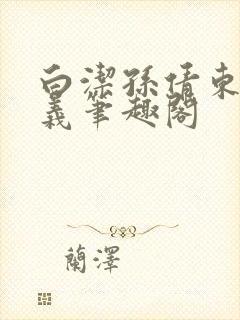 白潔孫倩東
義筆趣閣
蘭澤